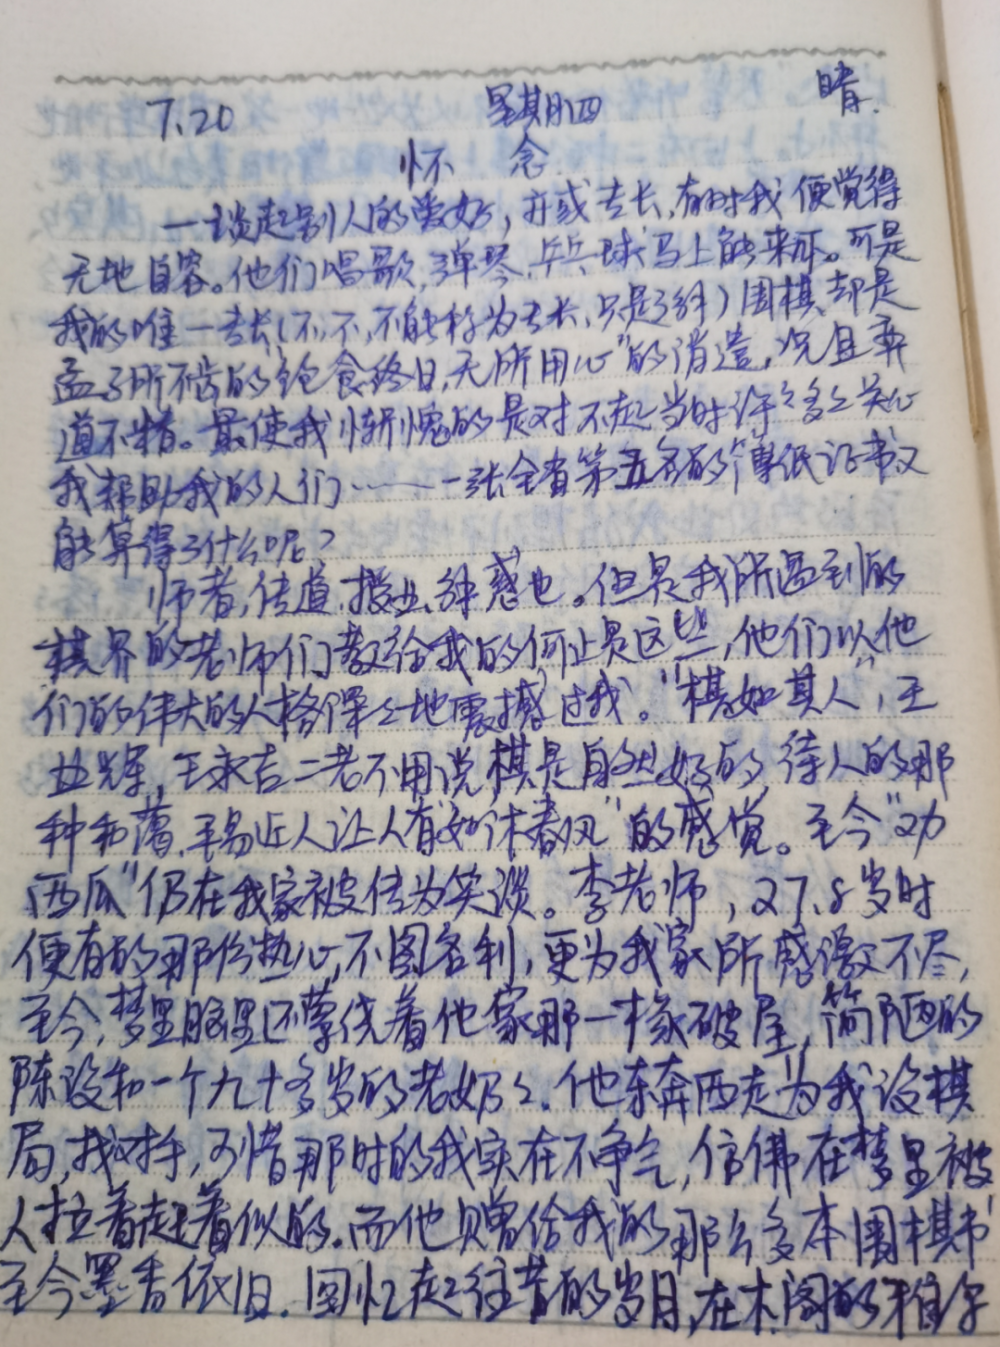 7.20 星期四 晴.
怀 念
一谈起别人的爱好，亦或专长，有时我便觉得
无地自容。他们唱歌，弹琴，乒乓球马上能来ところ。可是
我的唯一专长（不，不，不能称为专长，只是了解）围棋，却是
孟子所不齿的"饱食终日，无所用心"的消遣，况且弈
道不精。最使我惭愧的是对不起当时许许多多关心
我帮助我的人们……一张全省第五名的薄纸证书又
能算得了什么呢？
师者，传道、授业、解惑也。但是我所遇到的
棋界的老师们教给我的何止是这些，他们以他
们的伟大的人格深深地震撼过我。"棋如其人"，王
业辉，王永吉二老不用说棋是自然好的，待人的那
种和蔼，平易近人让人有"如沐春风"的感觉。至今"功
西瓜"仍在我家被传为笑谈。李老师，27、8岁时
便有的那份热心，不图名利，更为我家所感激不尽，
至今，梦里脑里还萦绕着他家那一椽破屋，简陋的
陈设和一个九十多岁的老奶奶。他"东奔西走"为我设棋
局，找对手，可惜那时的我实在不争气，仿佛在梦里被
人拉着赶着似的。而他赠给我的那么多本围棋书
至今墨香依旧。回忆起往昔的岁月，在木阁的雅